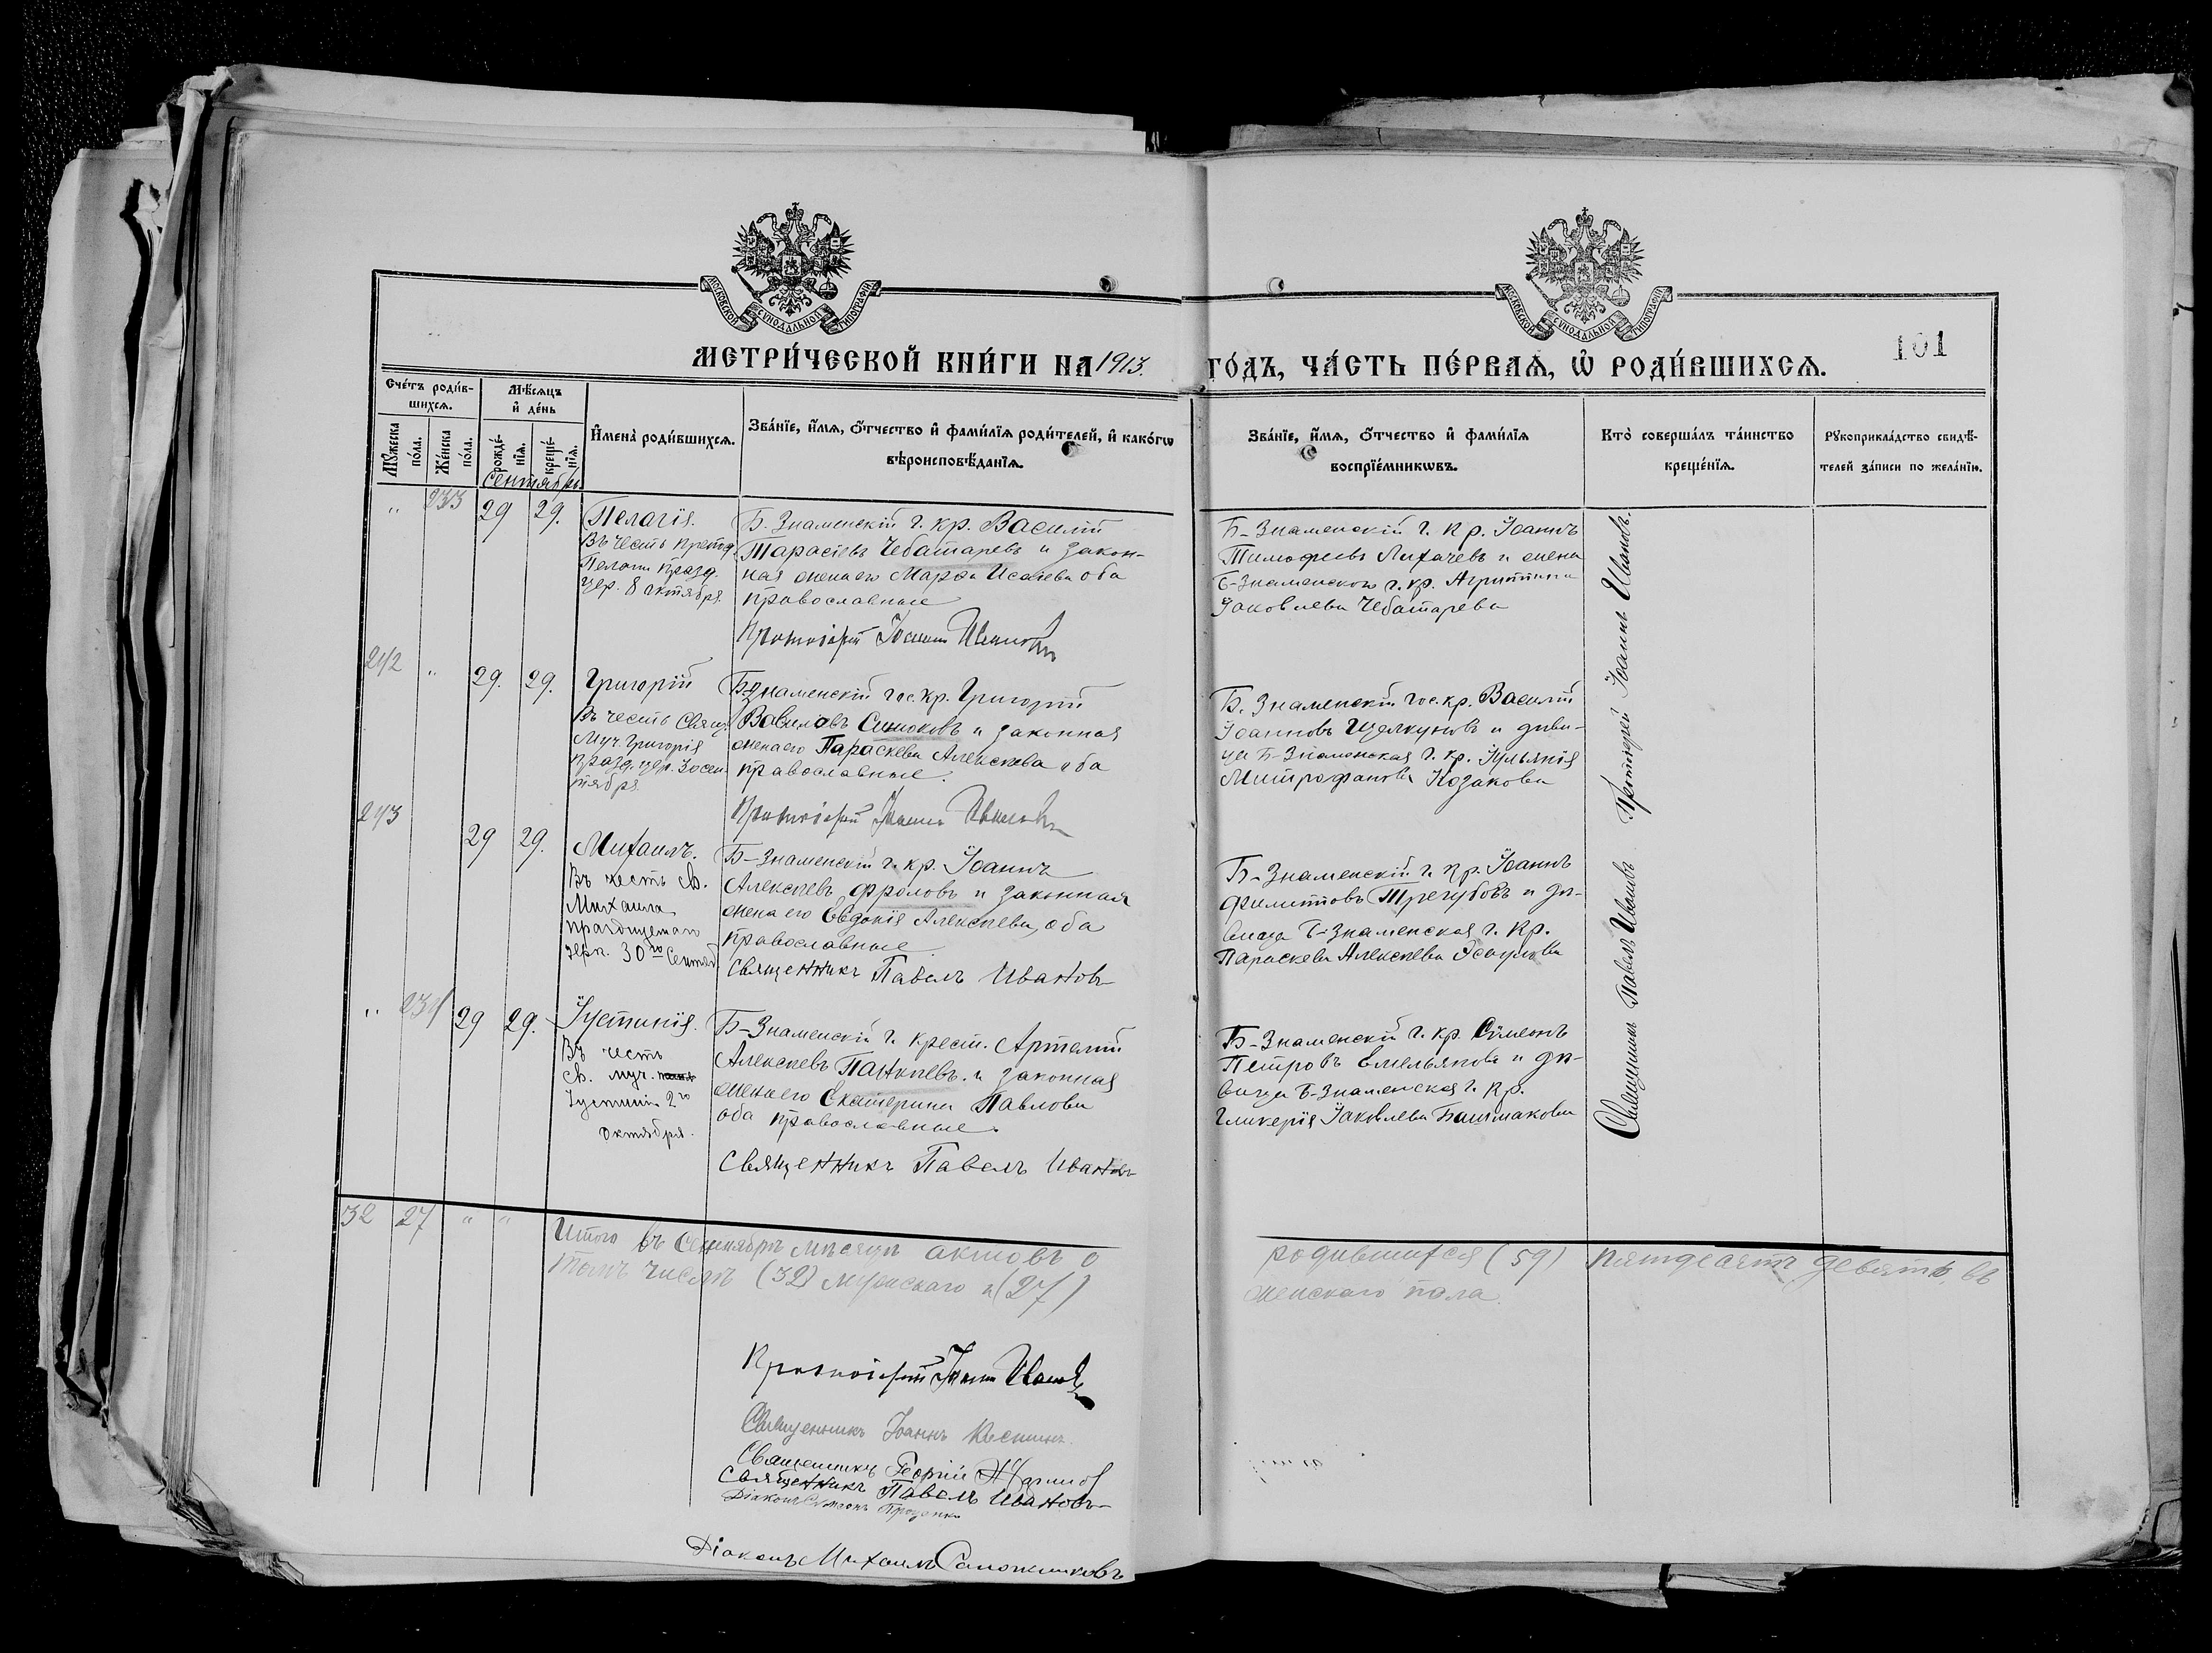 МОСКОВСКОЙ СУНОДАЛЬНОЙ ТИПОГРАФІИ
МОСКОВСКОЙ СУНОДАЛЬНОЙ ТИПОГРАФІИ
101
МЕТРИ́ЧЕСКОЙ КНИ́ГИ НА 1913. ГО́ДЪ, ЧА́СТЬ ПЕ́РВАѦ, Ѡ҆ РОДИ́ВШИХСѦ.
Сче́тъ роди́в-
шихсѧ.
Мѣ́сѧцъ
и҆ де́нь
Мꙋ́жеска по́ла.
Же́нска по́ла.
рожде́-
нїѧ.
креще́-
нїѧ.
Сентябрь
И҆мена̀ роди́вшихсѧ.
Зва́нїе, и҆́мѧ, ѻ҆́тчество и҆ фами́лїѧ роди́телей, и҆ како́гѡ
вѣроисповѣ́данїѧ.
Зва́нїе, и҆́мѧ, ѻ҆́тчество и҆ фами́лїѧ
воспрїе́мникѡвъ.
Кто̀ соверша́лъ та́инство
креще́нїѧ.
Рꙋкоприкла́дство свидѣ́-
телей за́писи по жела́нїю.
" 233 29 29. Пелагія.
Въ честь препод.
Пелагіи празд.
цер. 8 октября.
Б. Знаменскій г. кр. Василій
Тарасіевъ Чебатаревъ и закон-
ная жена его Марфа Исаева оба
православные
Протоіерей Іоаннъ Ивановъ
Б-Знаменскій г. кр. Іоаннъ
Тимофеевъ Лихачевъ и жена
Б-Знаменскаго г. кр. Агриппина
Іаковлева Чебатарева
242 " 29. 29. Григорій
Въ честь Свящ.
Муч. Григорія
празд. цер. 30 сен-
тября
Б-Знаменскій гос. кр. Григорій
Вавиловъ Синюковъ и законная
жена его Параскева Алексеева оба
православные.
Протоіерей Іоаннъ Ивановъ
Б. Знаменскій гос. кр. Василій
Іоанновъ Щелкуновъ и деви-
ца Б-Знаменская г. кр. Іульянія
Митрофанова Козакова
Протоіерей Іоаннъ Ивановъ.
243 29 29. Михаилъ.
Въ честь св.
Михаила
празднуемаго
церк. 30го Сентяб.
Б-Знаменскій г. кр. Іоаннъ
Алексѣевъ Фроловъ и законная
жена его Евдокія Алексѣева, оба
православные
Священникъ Павелъ Ивановъ
Б-Знаменскій г. кр. Іоаннъ
Филипповъ Трегубовъ и дѣ-
вица Б-Знаменская г. кр.
Параскева Алексѣева
" 234 29 29. Іустинія.
Въ честь
св. муч.
Іустиніи 2го
октября.
Б-Знаменскій г. крест. Артемій
Алексѣевъ Панкѣевъ. и законная
жена его Екатерина Павлова
оба православные.
Священникъ Павелъ Ивановъ
Б-Знаменскій г. кр. Симеонъ
Петровъ Емельяновъ и дѣ-
вица Б-Знаменская г. кр.
Гликерія Іаковлева Башмакова
Священникъ Павелъ Ивановъ
32 27 " " Итого въ Сентябрѣ мѣсяцѣ актовъ о родившихся (59) пятдесятъ девять, въ
томъ числѣ (32) мужскаго и (27) женскаго пола.
Протоіерей Іоаннъ Ивановъ
Священникъ Іоаннъ
Священникъ Георгій
Священникъ Павелъ Ивановъ
Діаконъ Симеонъ Проценко
Діаконъ Михаилъ Сапожниковъ